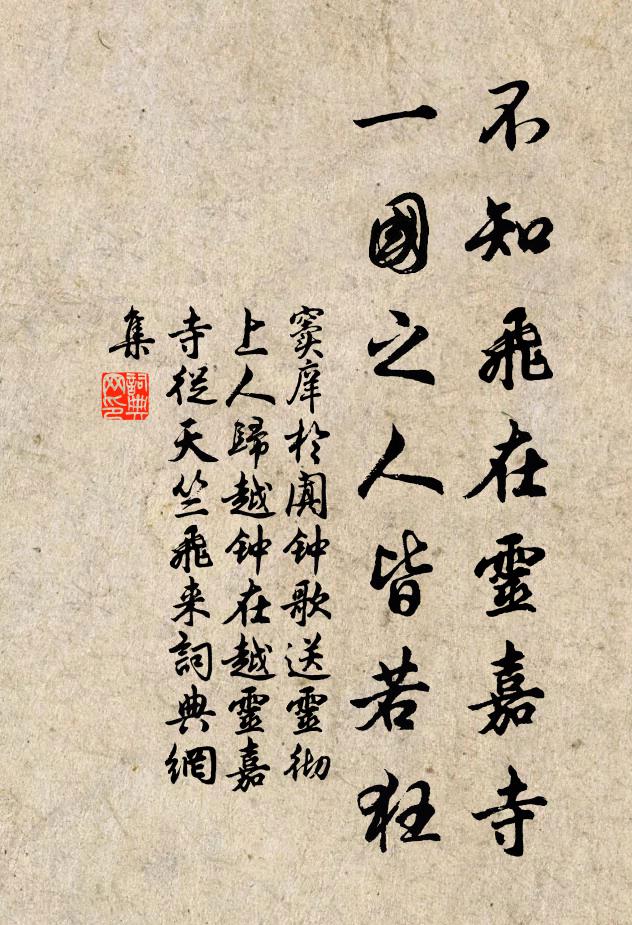 不知飛在靈嘉寺
一國之人皆若狂
竇庠於闐钟歌送靈彻
上人歸越钟在越靈嘉
寺從天竺飛来詞典網
集
詞典
网印